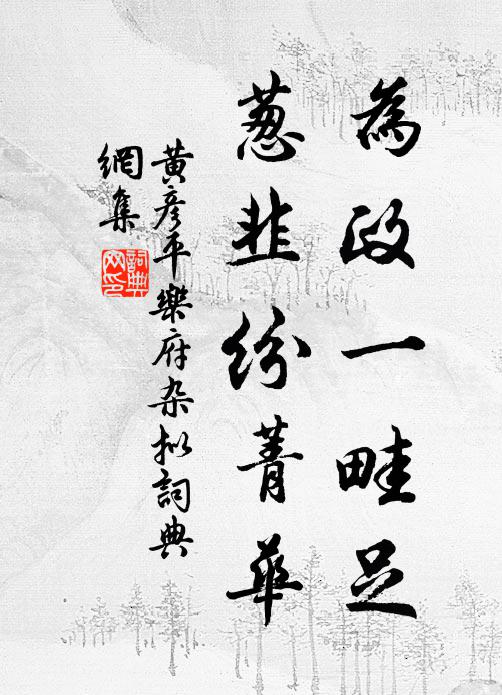 為政一畦足
葱韭紛菁華
黃彥平樂府杂拟詞典
網集
詞典
网印